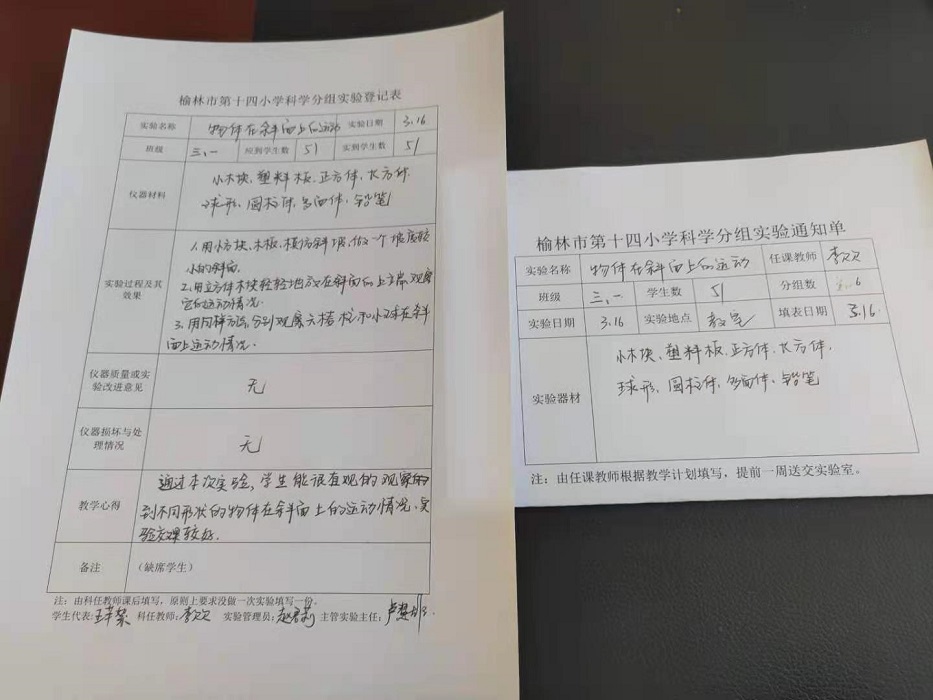 榆林市第十四小学科学分组实验登记表
实验名称 物体在斜面上的运动 实验日期 3.16
班级 三、一 应到学生数 51 实到学生数 51
仪器材料 小木块、塑料板、正方体、长方体、
球形、圆柱体、多面体、铅笔
实验过程及其
效果
1.用小方块、木板、模仿斜坡,做一个坡度较
小的斜面.
2.用立方体木块轻轻地放在斜面的上端,观察
它的运动情况.
3.用同样方法,分别观察六棱柱和小球在斜
面上运动情况.
仪器质量或实
验改进意见
无
仪器损坏与处
理情况
无
教学心得
通过本次实验,学生能很直观的观察的
到不同形状的物体在斜面上的运动情况,实
验效果较好.
备注 (缺席学生)
注:由科任教师课后填写,原则上要求没做一次实验填写一份。
学生代表: 科任教师: 实验管理员: 主管实验主任:
榆林市第十四小学科学分组实验通知单
实验名称 物体在斜面上的运动 任课教师
班级 三、一 学生数 51 分组数 6
实验日期 3.16 实验地点 教室 填表日期 3.16
实验器材
小木块、塑料板、正方体、长方体、
球形、圆柱体、多面体、铅笔
注:由任课教师根据教学计划填写,提前一周送交实验室。